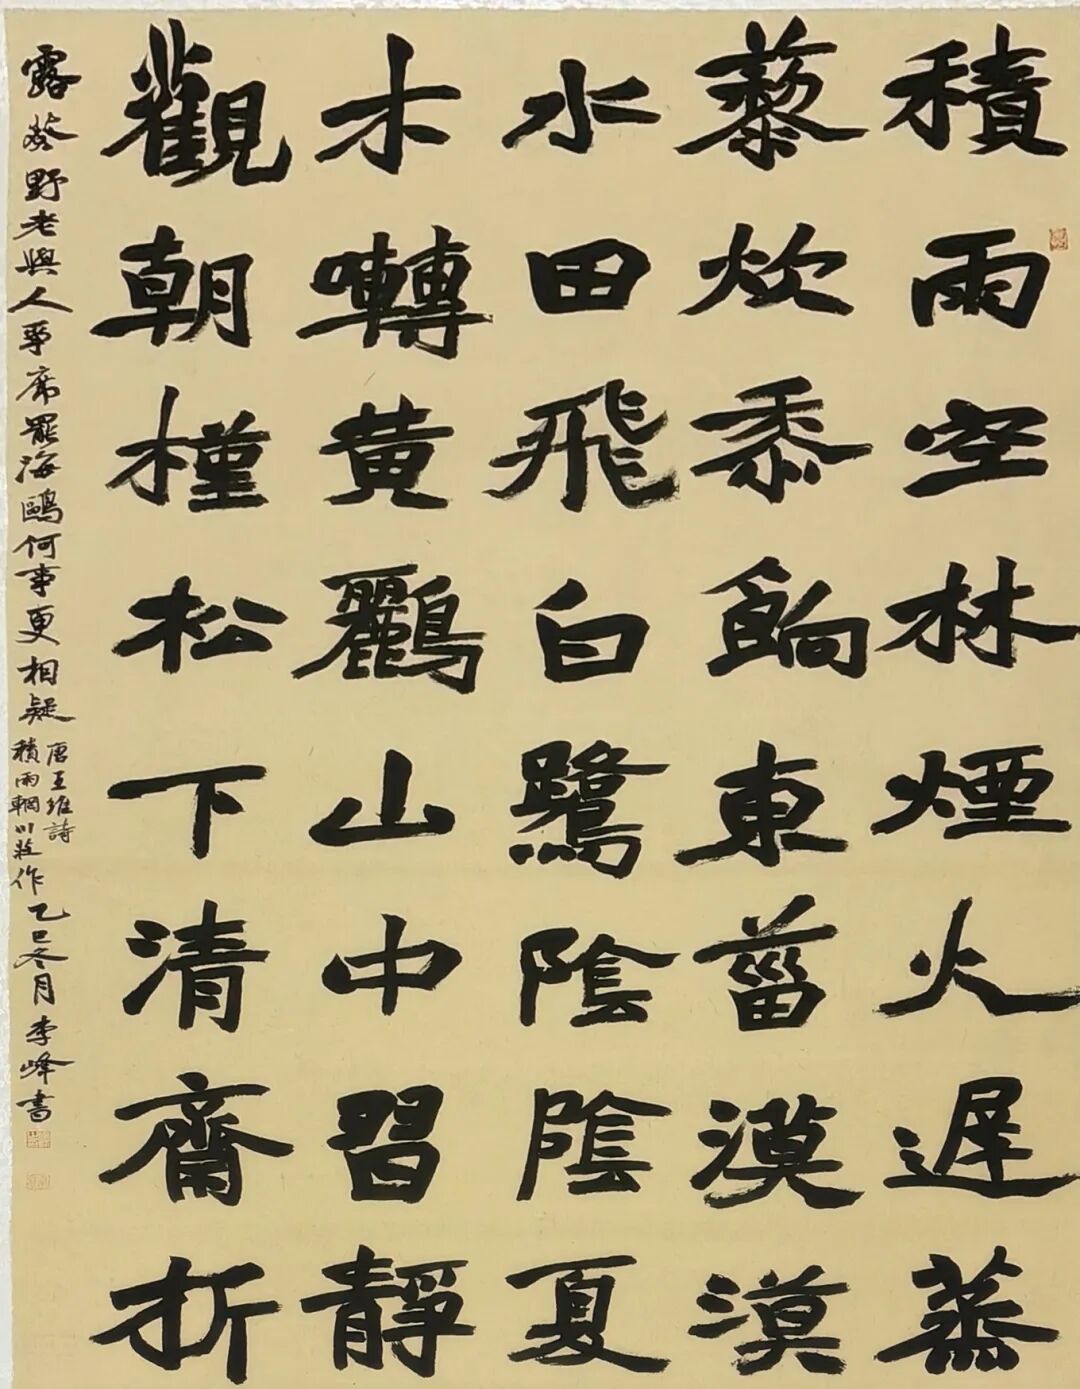 積雨空林煙火遲蒸
藜炊黍餉東菑漠漠
水田飛白鷺陰陰夏
木囀黄鸝山中習靜
觀朝槿松下清齋折
露葵野老與人爭席罷海鷗何事更相疑
唐王維詩
積雨輞川莊作乙巳冬月李峰書